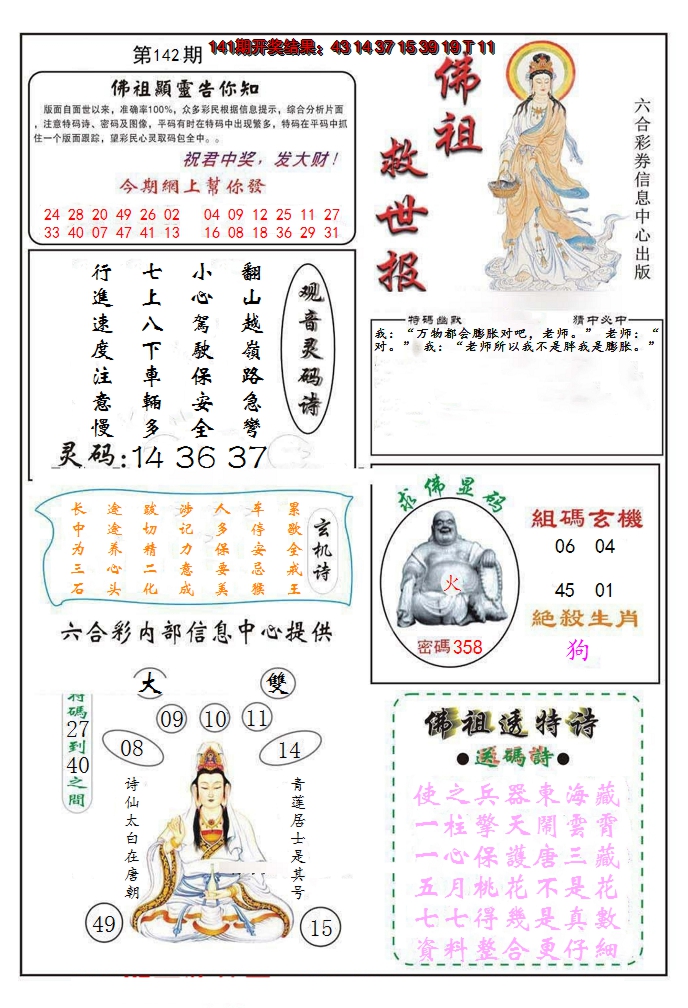 第142期
141期开奖结果：43 14 37 15 39 19 T 11
佛祖顯靈告你知
版面自面世以来，准确率100%，众多彩民根据信息提示，综合分析片面
，注意特码诗、密码及图像，平码有时在特码中出现繁多，特码在平码中抓
住一个版面跟踪，望彩民心灵取码包全中。。
祝君中奖，发大财！
今期網上幫你發
24 28 20 49 26 02 04 09 12 25 11 27
33 40 07 47 41 13 16 08 18 36 29 31
佛祖
救世报
六合彩券信息中心出版
观音灵码诗
翻山越嶺路急彎
小心駕駛保安全
七上八下車輛多
行進速度注意慢
灵码:14 36 37
特碼幽默
猜中必中
我：“万物都会膨胀对吧，老师。” 老师：“
对。” 我：“老师所以我不是胖我是膨胀。”
玄机诗
累歇全戒王
车停安忌猴
人多保要美
涉记力意成
跋切精二化
途途养心头
长中为三石
六合彩内部信息中心提供
求佛显码
火
密碼358
組碼玄機
06 04
45 01
絕殺生肖
狗
大
雙
特碼27到40之間
09
10
11
08
14
诗仙太白在唐朝
青莲居士是其号
49
15
佛祖透特诗
●送碼詩●
使之兵器東海藏
一柱擎天鬧雲霄
一心保護唐三藏
五月桃花不是花
七七得幾是真數
資料整合更仔細